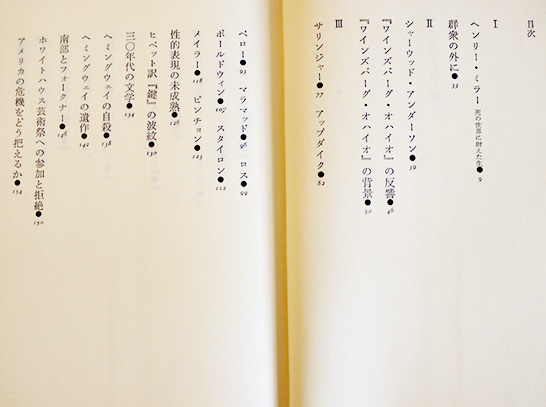 目次
I
ヘンリー・ミラー 死の世界に耐えた生●9
群衆の外に●33
II
シャーウッド・アンダーソン●39
『ワインズバーグ・オハイオ』の反響●46
『ワインズバーグ・オハイオ』の背景●50
III
サリンジャー●77 アップダイク●82
ベロー●93 マラマッド●96 ロス●99
ボールドウィン●107 スタイロン●112
メイラー●118 ピンチョン●123
性的表現の未成熟●126
ヒベット訳『鍵』の波紋●130
三〇年代の文学●134
ヘミングウェイの自殺●138
ヘミングウェイの遺作●142
南部とフォークナー●146
ホワイトハウス芸術祭への参加と拒絶●150
アメリカの危機をどう把えるか●154